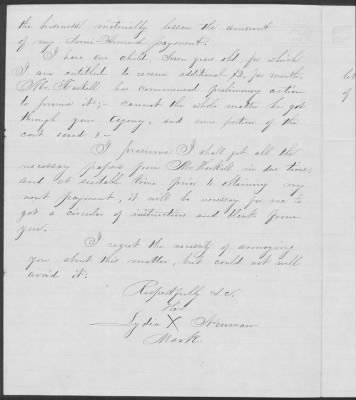 the business materially lessen the amount
of my Semi-Annual payment.
I have one child Seven years old for which
I am entitled to receive additional $2. per month,
Mr. Haskell has commenced preliminary action
to procure it; - cannot the whole matter be got
through your Agency, and some portion of the
cost saved? -
I presume I shall get all the
necessary papers from Mr Haskell in due time,
and at suitable time prior to obtaining my
next payment, it will be necessary for me to
get a circular of instructions and blank from
you.
I regret the necessity of annoying
you about this matter, but could not well
avoid it.
Respectfully &c.
Her
Lydia X Newman
Mark.